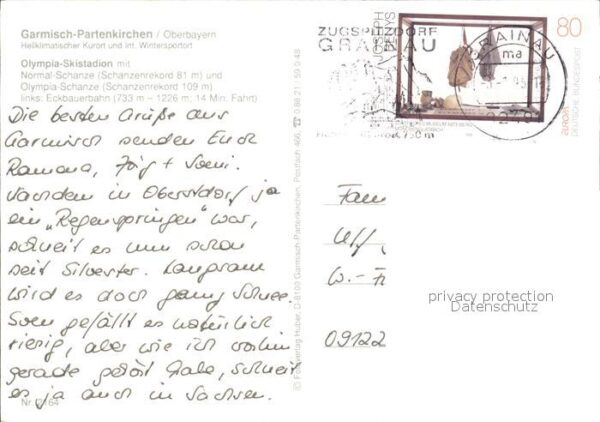 Garmisch-Partenkirchen / Oberbayern
Heilklimatischer Kurort und int. Wintersportort
Olympia-Skistadion mit
Normal-Schanze (Schanzenrekord 81 m) und
Olympia-Schanze (Schanzenrekord 109 m)
links: Eckbauerbahn (733 m – 1226 m; 14 Min. Fahrt)
Die besten Grüße aus
Garmisch senden Euch
Ramona, Jörg + Sveni.
Nachdem in Oberstdorf ja
ein „Regenspringen" war,
schneit es nun schon
seit Silvester. Langsam
wird es doch ganz Schnee.
Sveni gefällt es natürlich
riesig, aber wie ich vorhin
gerade gehört habe, schneit
es ja auch in Sachsen.
Nr. 2164
© Fotoverlag Huber, D-8100 Garmisch-Partenkirchen, Postfach 466, ☎ 0 88 21
ZUGSPITZDORF
GRAINAU
JOSEPH
BEUYS
80
GRAINAU
EUROPA
DEUTSCHE BUNDESPOST
Fam
W.-
09122
privacy protection
Datenschutz